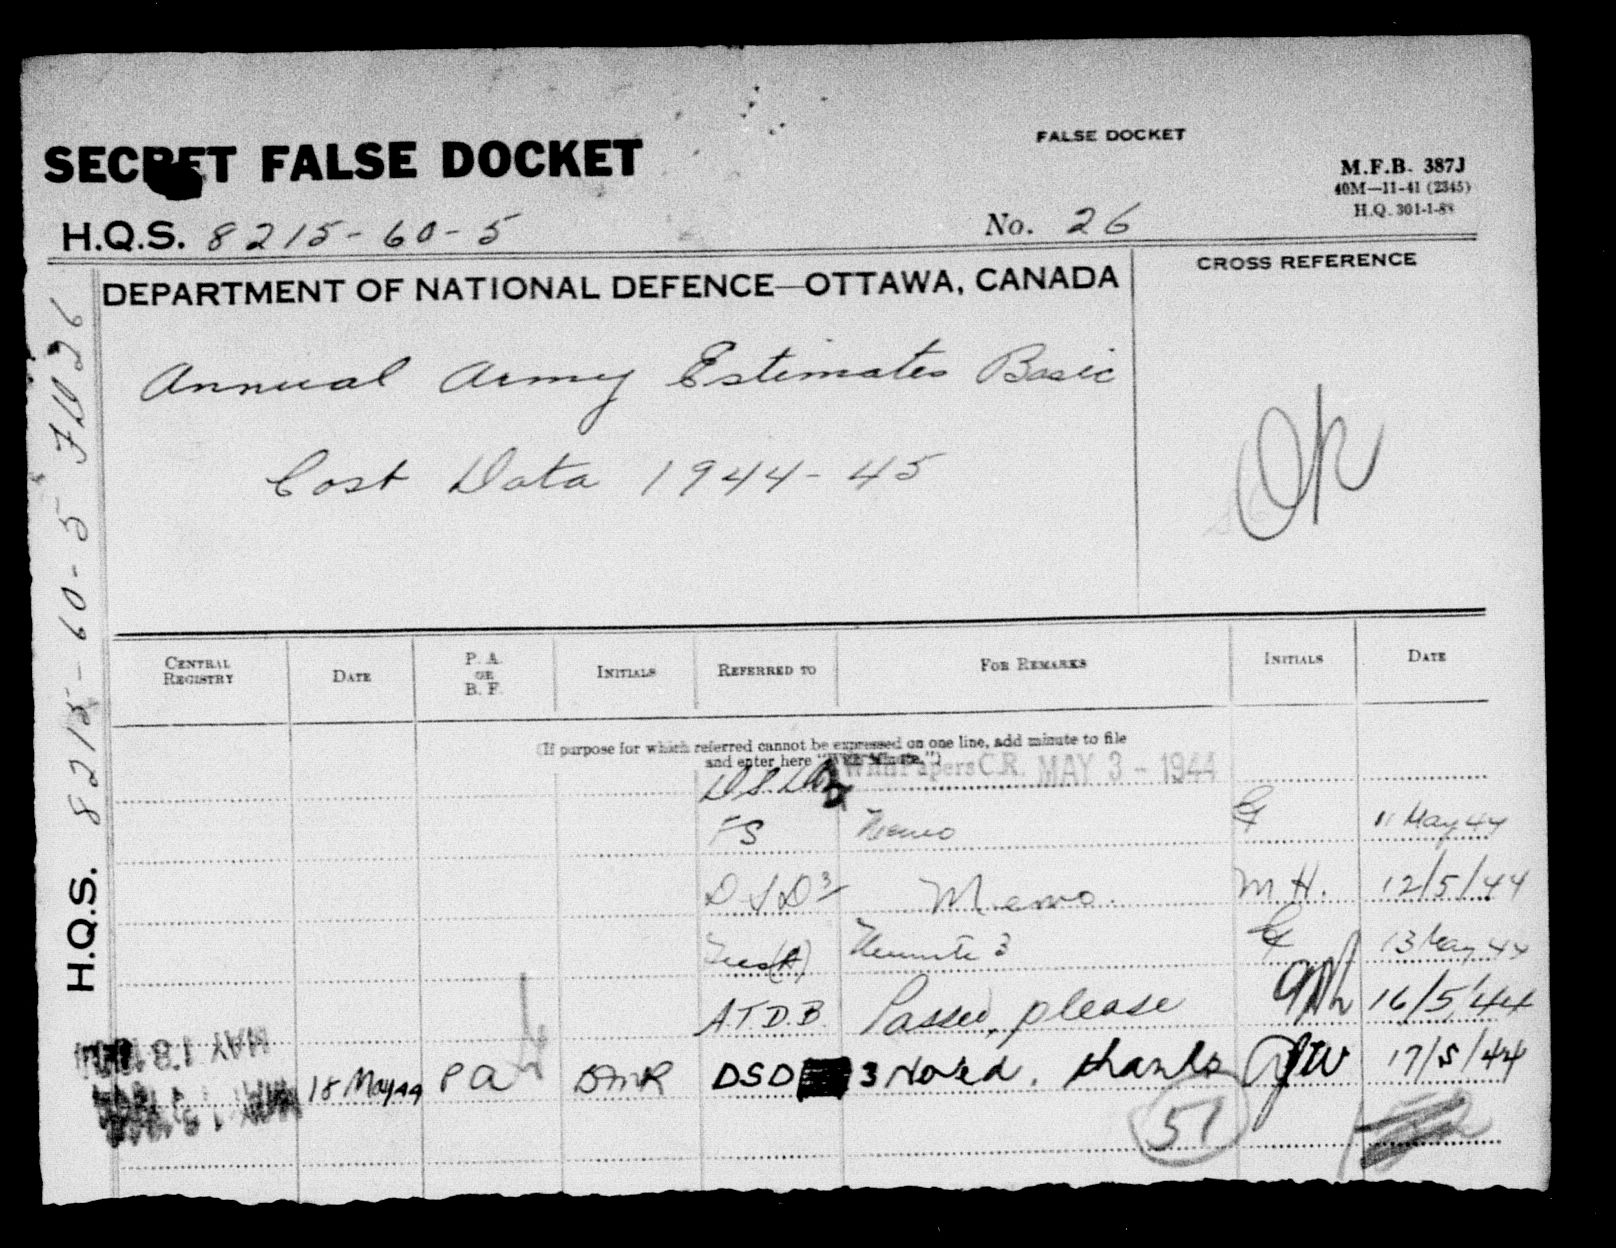 FALSE DOCKET
SECRET FALSE DOCKET
M.F.B. 387J
40M—11-41 (2345)
H.Q. 301-1-88
H.Q.S. 8215-60-5
No. 26
DEPARTMENT OF NATIONAL DEFENCE—OTTAWA, CANADA
CROSS REFERENCE
Annual Army Estimates Basic
Cost Data 1944-45
H.Q.S. 8215-60-5 FD 26
CENTRAL REGISTRY
DATE
P. A. OR B. F.
INITIALS
REFERRED TO
FOR REMARKS
INITIALS
DATE
(If purpose for which referred cannot be expressed on one line, add minute to file
and enter here "With Minute.")
With Papers C.R. MAY 3 - 1944
FS Memo 11 May 44
DSD3 Memo. M.H. 12/5/44
3 13 May 44
A.T.D.B. Passed, please 16/5/44
MAY 18
18 May 44 PA DSD 3 Noted, thanks 17/5/44
51